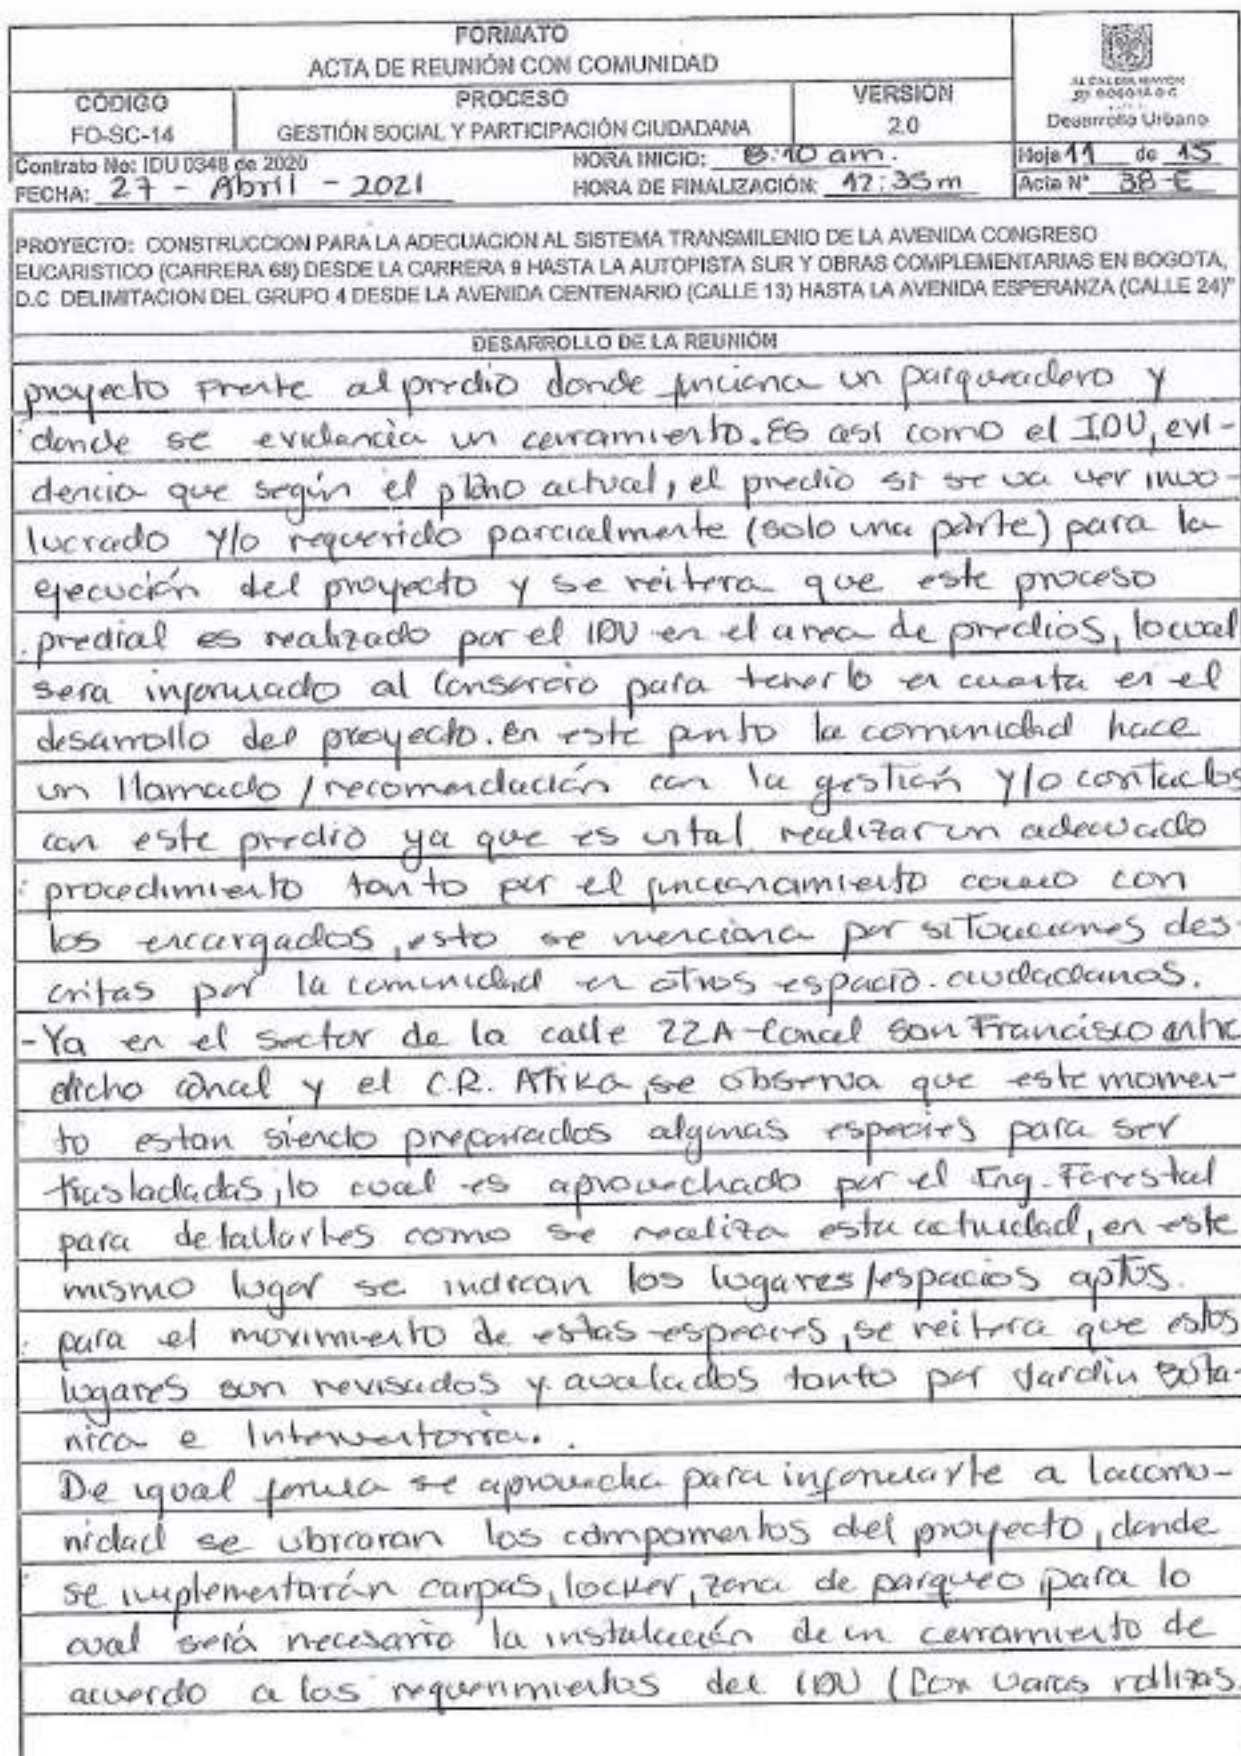 FORMATO
ACTA DE REUNIÓN CON COMUNIDAD
CÓDIGO
FO-SC-14
PROCESO
GESTIÓN SOCIAL Y PARTICIPACIÓN CIUDADANA
VERSIÓN
2.0
ALCALDÍA MAYOR
DE BOGOTÁ D.C.
Desarrollo Urbano
Contrato No: IDU 0348 de 2020
FECHA: 27 - Abril - 2021
HORA INICIO: 8:10 am.
HORA DE FINALIZACIÓN: 12:35m
Hoja 11 de 15
Acta N° 38-E
PROYECTO: CONSTRUCCION PARA LA ADECUACION AL SISTEMA TRANSMILENIO DE LA AVENIDA CONGRESO
EUCARISTICO (CARRERA 68) DESDE LA CARRERA 9 HASTA LA AUTOPISTA SUR Y OBRAS COMPLEMENTARIAS EN BOGOTA,
D.C DELIMITACIÓN DEL GRUPO 4 DESDE LA AVENIDA CENTENARIO (CALLE 13) HASTA LA AVENIDA ESPERANZA (CALLE 24)"
DESARROLLO DE LA REUNIÓN
proyecto frente al predio donde funciona un parqueadero y
donde se evidencia un cerramiento. Es así como el IDU, evi-
dencia que según el plano actual, el predio si se va ver invo-
lucrado y/o requerido parcialmente (solo una parte) para la
ejecución del proyecto y se reitera que este proceso
predial es realizado por el IDU en el area de predios, lo cual
sera informado al Consorcio para tenerlo en cuenta en el
desarrollo del proyecto. En este punto la comunidad hace
un llamado / recomendación con la gestión y/o contactos
con este predio ya que es vital realizar un adecuado
procedimiento tanto por el funcionamiento como con
los encargados, esto se menciona por situaciones des-
critas por la comunidad en otros espacio ciudadanos.
-Ya en el sector de la calle 22A-Canal San Francisco entre
dicho canal y el C.R. Atika, se observa que este momen-
to estan siendo preparados algunas especies para ser
trasladadas, lo cual es aprovechado por el Ing. Forestal
para detallarles como se realiza esta actividad, en este
mismo lugar se indican los lugares/espacios aptos.
para el movimiento de estas especies, se reitera que estos
lugares son revisados y avalados tanto por Jardin Bota-
nico e Interventoria.
De igual forma se aprovecha para informarle a la comu-
nidad se ubicaran los campamentos del proyecto, donde
se implementarán carpas, locker, zona de parqueo para lo
cual será necesario la instalación de un cerramiento de
acuerdo a los requerimientos del IDU (Con varas rollizas.